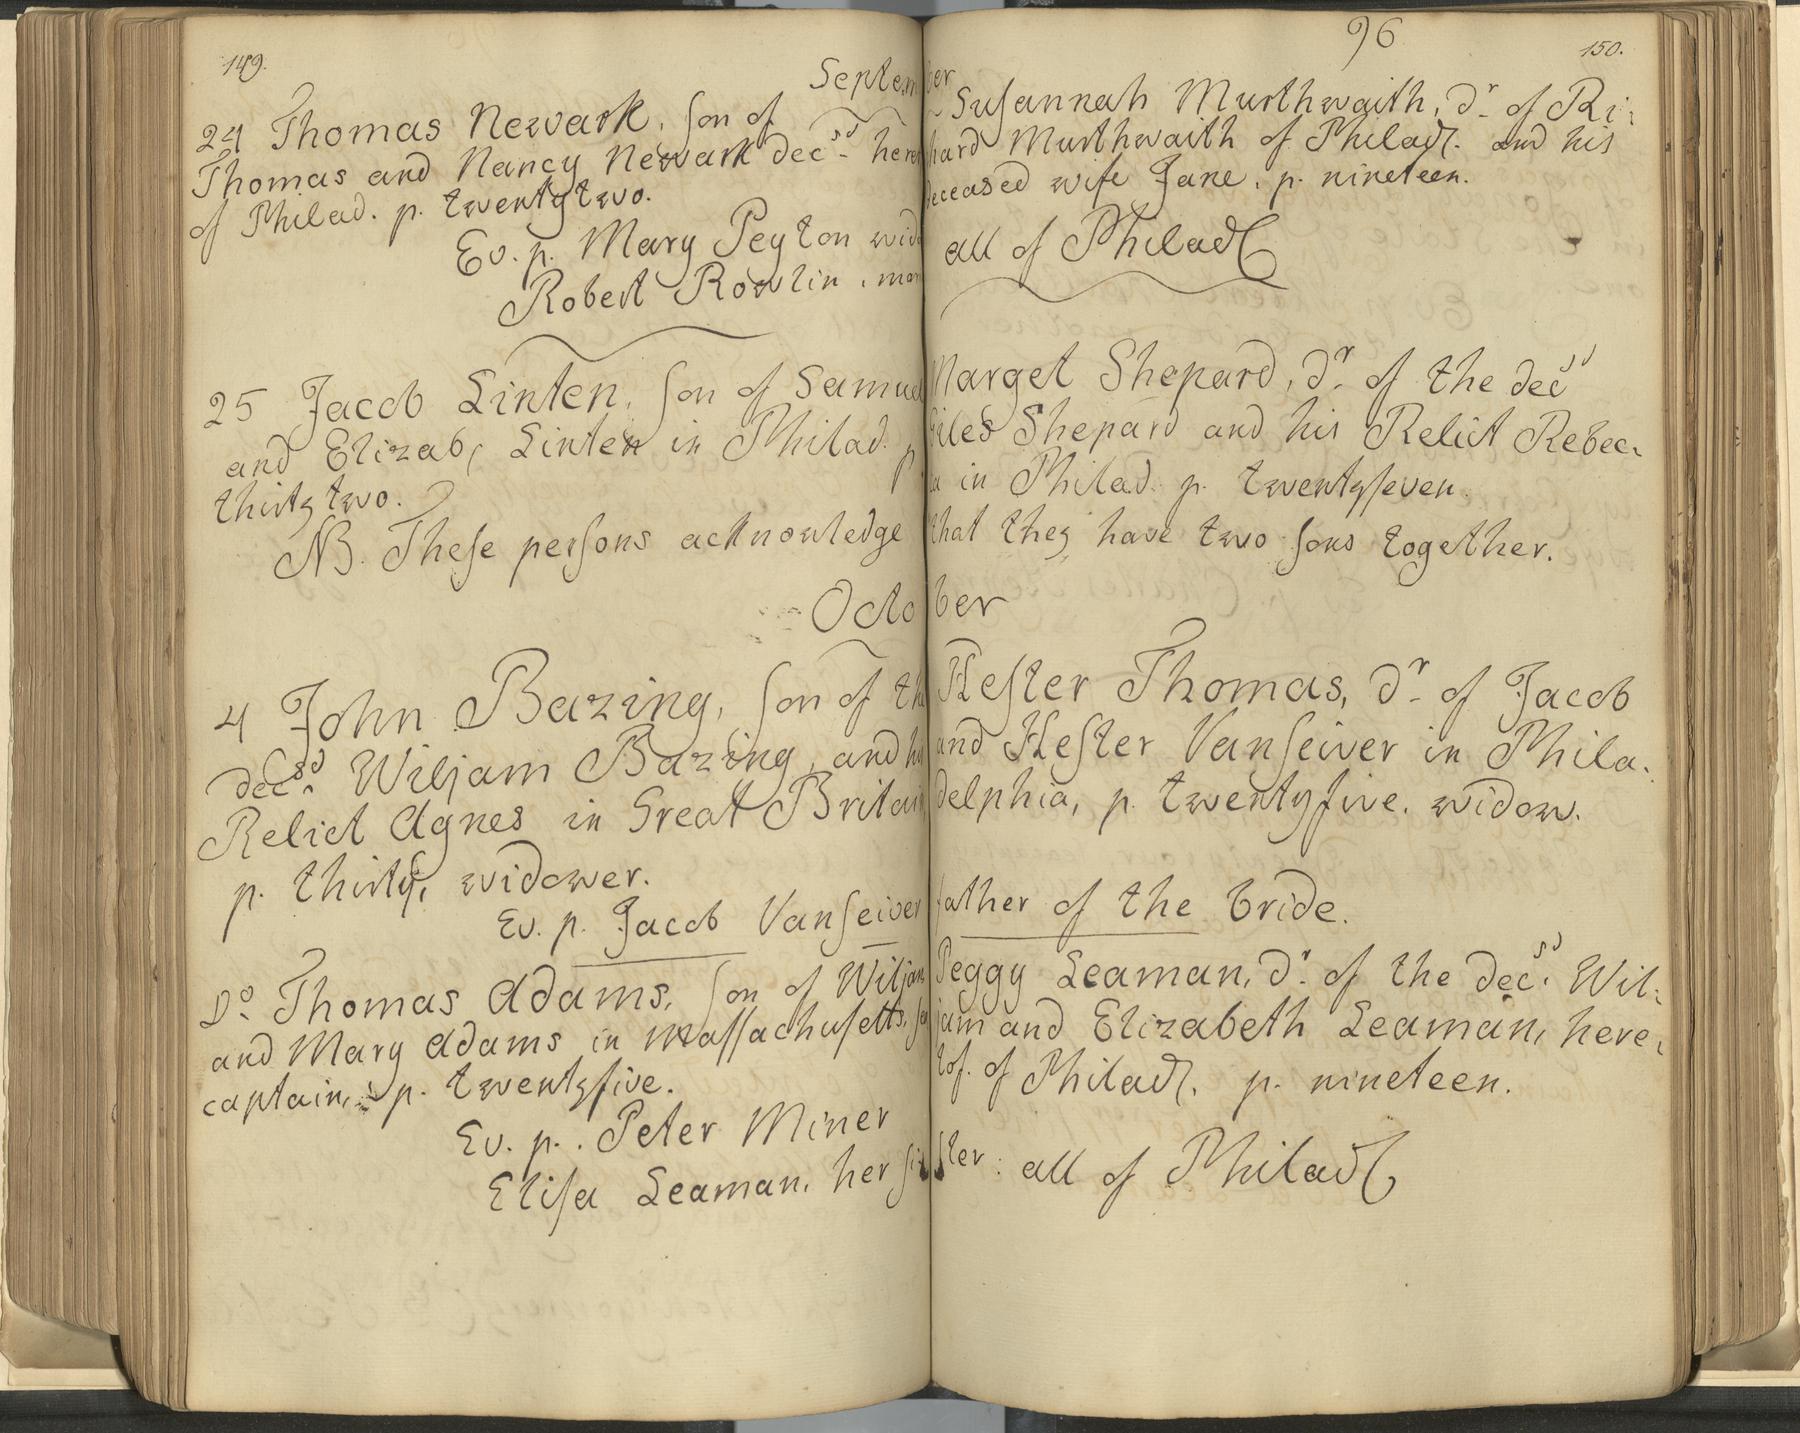 149.
September
24 Thomas Newark, son of
Thomas and Nancy Newark decsd. here
of Philad. p. twentytwo.
Ev. p. Mary Peyton wid
Robert Rowlin, mar
25 Jacob Linten, son of Samuel
and Elizab, Linten in Philad. p.
thirtytwo.
NB. These persons acknowledge
Octo
4 John Bazing, son of the
decsd. Wiljam Bazing, and his
Relict Agnes in Great Britain,
p. thirty, widower.
Ev. p. Jacob Vanseiver
Do. Thomas Adams, son of Wiljam
and Mary Adams in Massachusetts,
captain, p. twentyfive.
Ev. p. Peter Miner
Elisa Leaman, her si
96
150.
Susannah Murthwaith, dr. of Ri:
hard Murthwaith of Philad. and his
deceased wife Jane, p. nineteen.
all of Philad
Marget Shepard, dr. of the decsd
Giles Shepard and his Relict Rebec:
ca in Philad. p. twentyseven.
that they have two sons together.
ber
Hester Thomas, dr. of Jacob
and Hester Vanseiver in Phila:
delphia, p. twentyfive. widow.
father of the bride.
Peggy Leaman, dr. of the decsd. Wil:
jam and Elizabeth Leaman, here:
tof. of Philad. p. nineteen.
ster: all of Philad